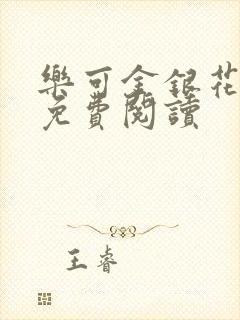 樂可金銀花
免費閱讀
王睿